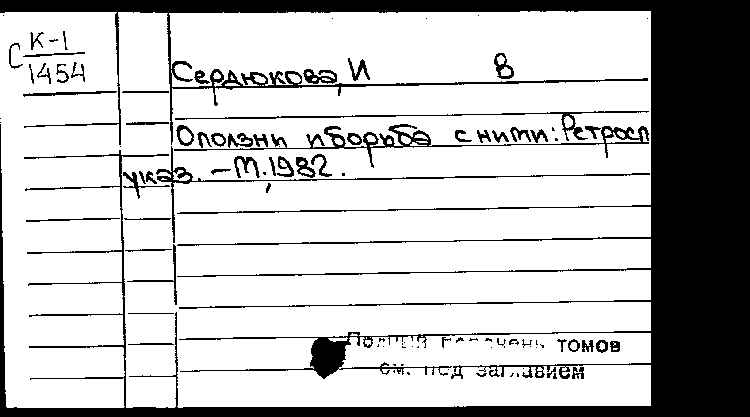 С К-1
1454
Сердюкова, И В
Оползни и борьба с ними: Ретросп
указ. – М., 1982.
Полный перечень томов
см. под заглавием